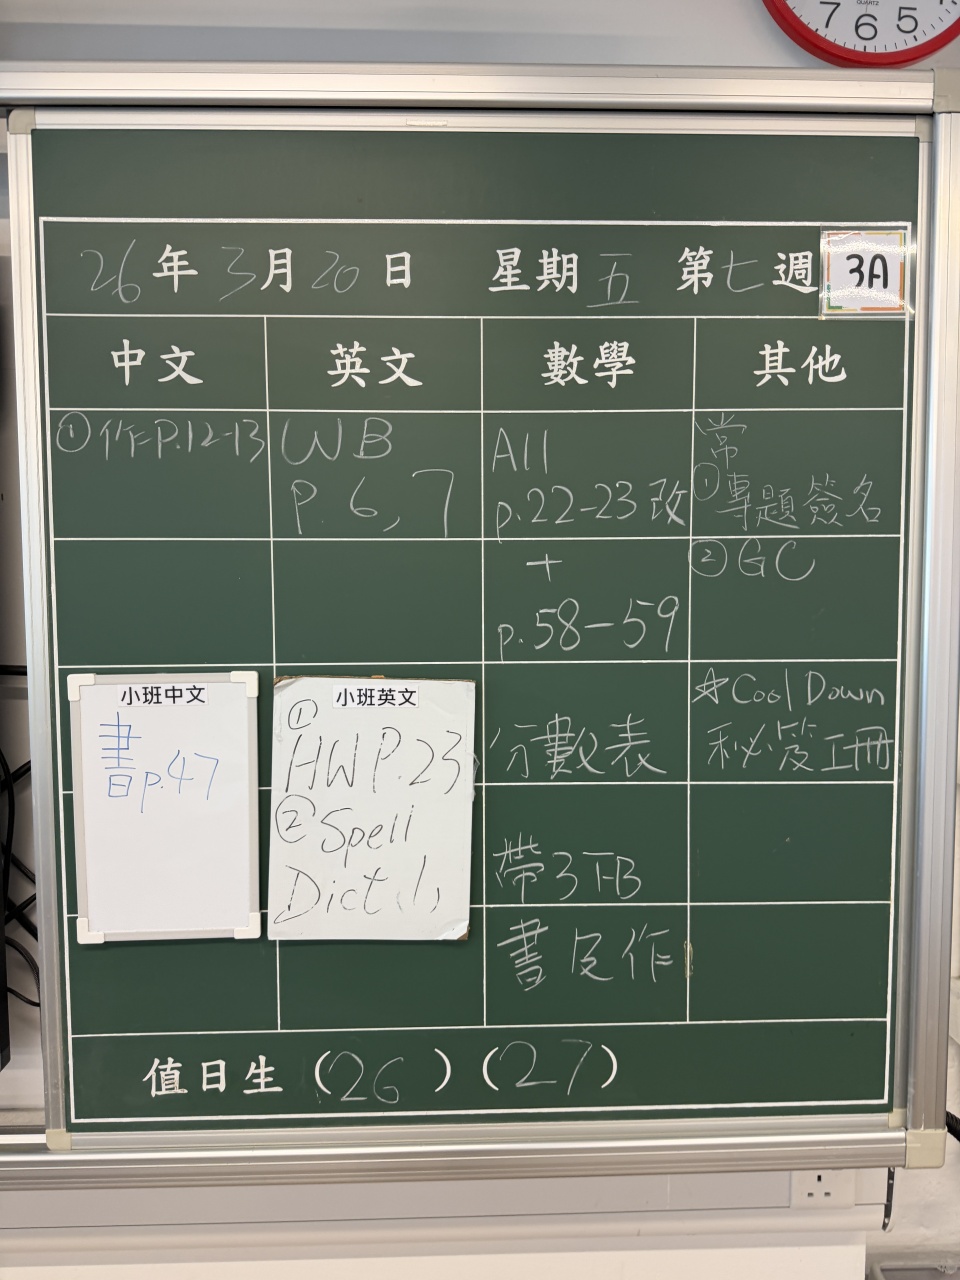 QUARTZ
7 6 5
26年3月20日 星期五 第七週 3A
中文 英文 數學 其他
①作二P.12-13
WB
P.6,7
All
p.22-23改
+
p.58-59
常
①專題簽名
②GC
☆Cool Down
小班中文
書p.47
小班英文
①
HW P.23
②Spell
Dict.
分數表
帶3TB
書 作
值日生(26)(27)